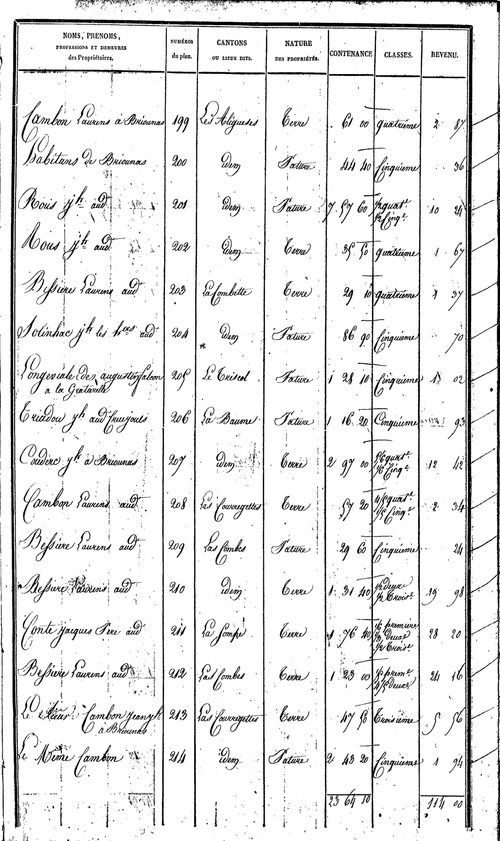 NOMS, PRENOMS, PROFESSIONS ET DEMEURES des Propriétaires. NUMÉROS du plan. CANTONS OU LIEUX DITS. NATURE DES PROPRIÉTÉS. CONTENANCE CLASSES. REVENU.
Cambon Laurens à Briounas 199 Les Aligueses Terre 61 00 quatrième 2 87
habitans de Briounas 200 idem Pature 44 40 Cinquieme 36
Rous jh aud 201 idem Pature 7 57 60 10 24
Rous jh aud 202 idem Terre 35 50 quatrième 1 67
Bessiere Laurens aud 203 La Combette Terre 29 10 quatrième 1 37
Solinhac jh les hres aud 204 idem Pature 86 90 Cinquieme 70
Longeviale de augustin falcon 205 Le Triscol Pature 1 28 10 Cinquieme 1 02
a la
Triadou jh aud 206 La Baume Pature 1 16 20 Cinquieme 93
Couderc jh à Briounas 207 idem Terre 2 97 00 12 42
Cambon Laurens aud 208 Las Courregettes Terre 57 20 2 34
Bessiere Laurens aud 209 Las Combes Pature 29 60 Cinquieme 24
Bessiere Laurens aud 210 idem Terre 1 31 40 19 98
Conte Jacques Pere aud 211 Terre 1 76 40 28 20
Bessiere Laurens aud 212 Las Combes Terre 1 23 00 24 16
Le Cambon 213 Las Courregettes Terre 47 50 Troisième 5 56
à Briounas
Le Même Cambon 214 idem Pature 2 43 20 Cinquieme 1 94
23 64 10 114 00